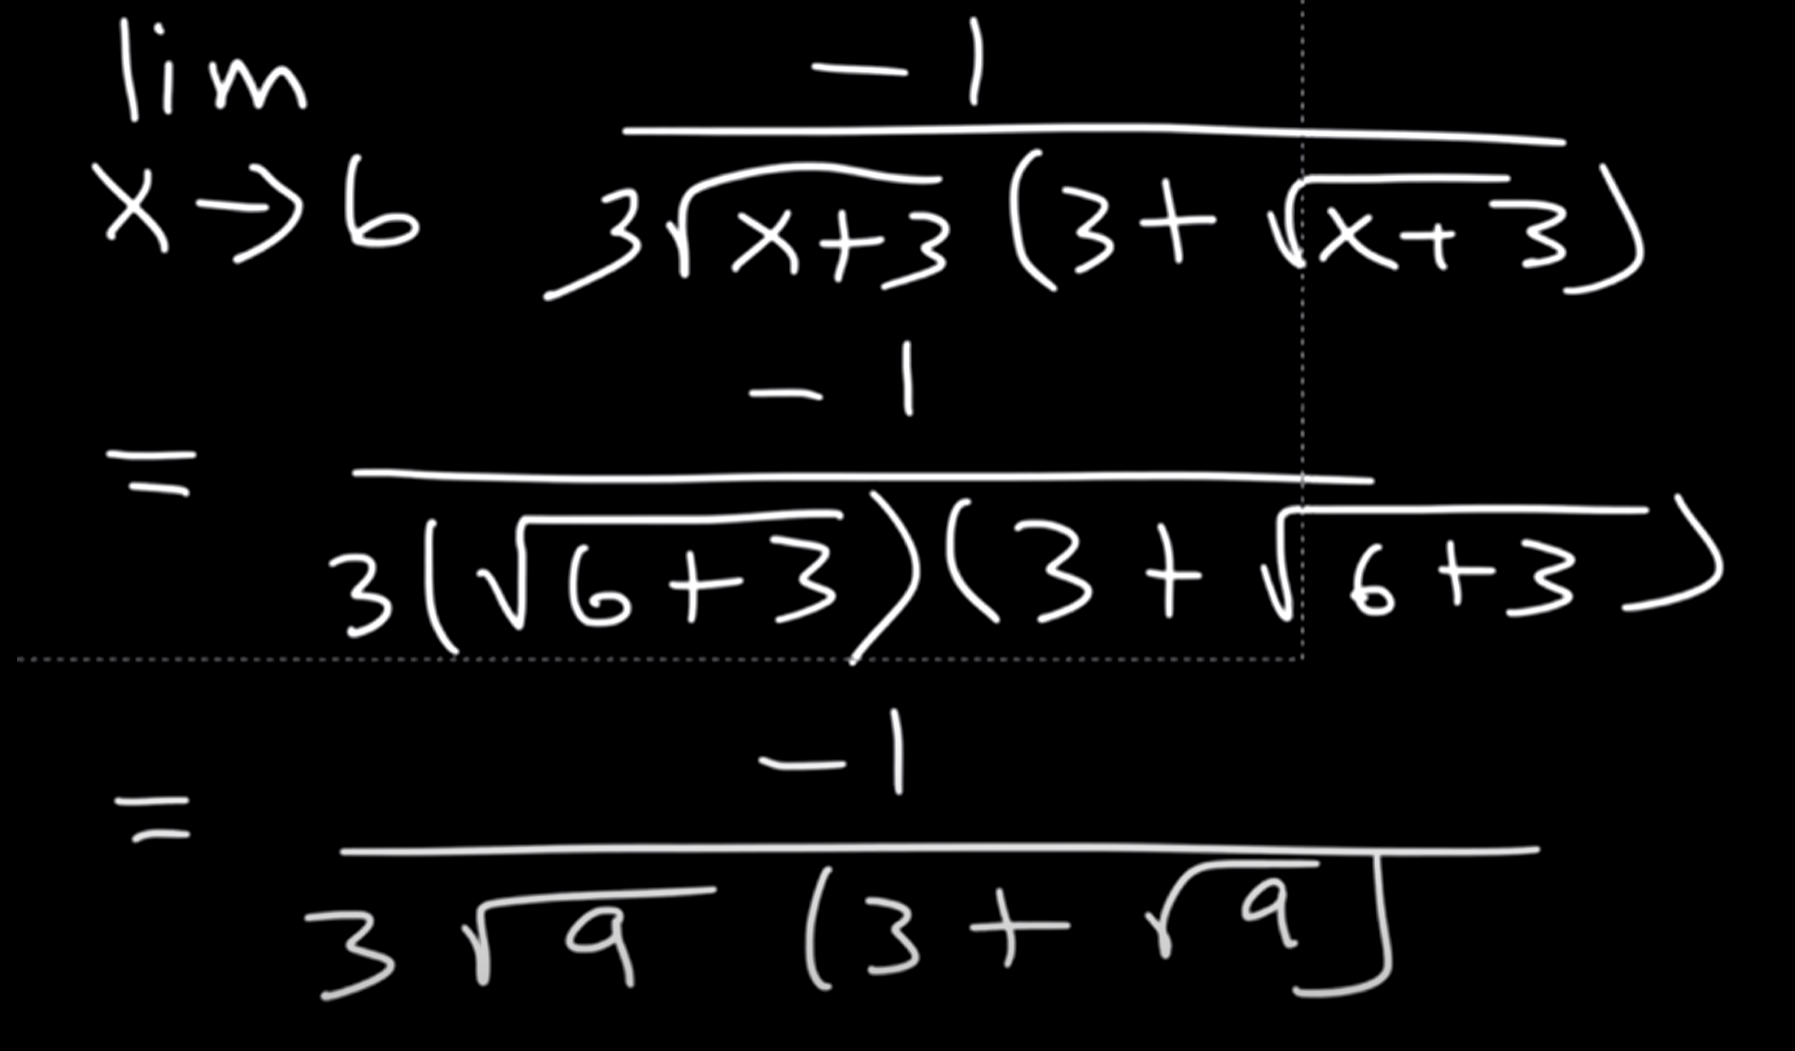 lim x→6 -1 / 3√(x+3) (3+√(x+3))
= -1 / 3(√(6+3))(3+√(6+3))
= -1 / 3√9 (3+√9)